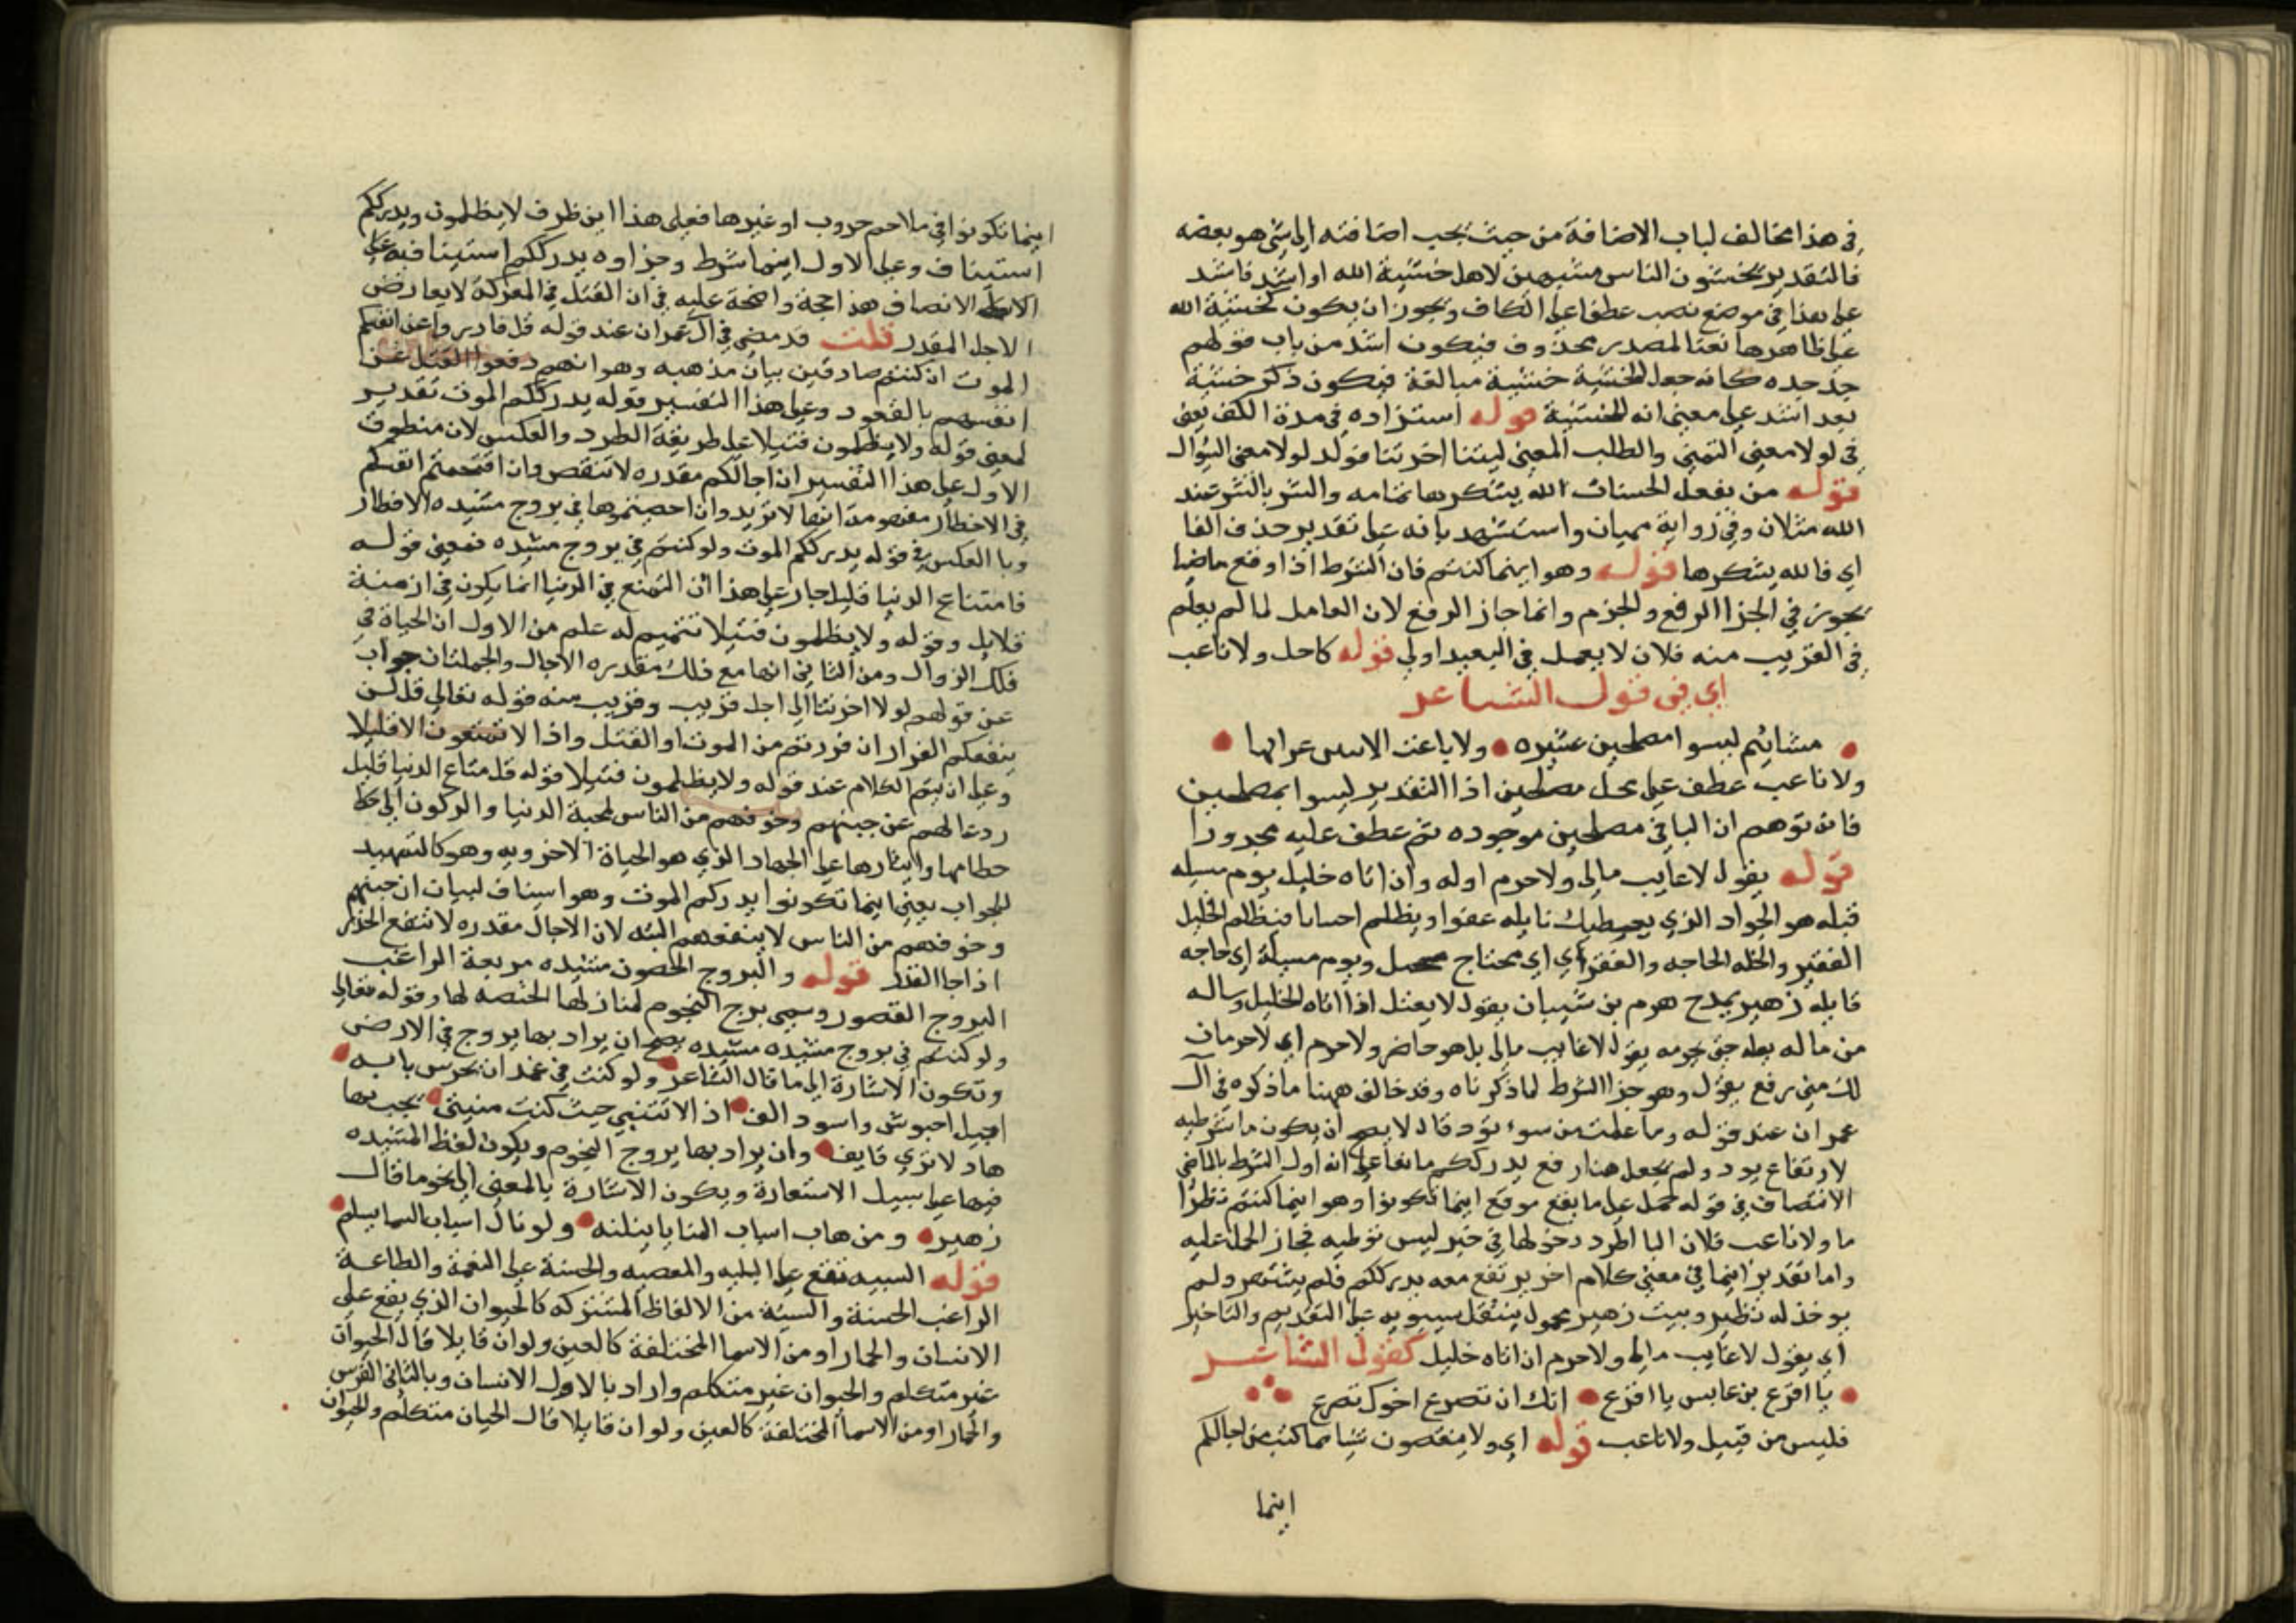 في هذا مخالف لباب الاضافة من حيث يجب اضافته الى شي هو بعضه
فالتقدير يخشون الناس مشبهين لاهل خشية الله او اشد فاشد
على هذا في موضع نصب عطفا على الكاف ويجوز ان يكون كخشية الله
على ظاهرها نعتا لمصدر محذوف فيكون اشد من باب قولهم
جد جده كانه جعل للخشية خشية مبالغة فيكون ذكر خشية
بعد اشد على معنى انه للخشية قوله استزاده في مدة الكف يعني
في لولا معنى التمني والطلب المعنى ليتنا اخرتنا فولد لولا معنى السؤال
قوله من يفعل الحسنات الله يشكرها تمامه والشر بالشر عند
الله مثلان وفي رواية سيان واستشهد بانه على تقدير حذف الفا
اي فالله يشكرها قوله وهو اينما كنتم فان الشرط اذا وقع ماضيا
يجوز في الجزا الرفع والجزم وانما جاز الرفع لان العامل لما لم يعلم
في القريب منه فلان لا يعمل في البعيد اولى قوله كاحل ولا ناعب
اي في قول الشاعر
مشائيم ليسوا مصلحين عشيره ولا ناعب الا ببين غرابها
ولا ناعب عطف على محل مصلحين اذا التقدير ليسوا بمصلحين
فانه توهم ان البا في مصلحين موجوده ثم عطف عليه مجرورا
قوله يقول لا غايب مالي ولا حرم اوله وان اتاه خليل يوم مسله
قبله هو الجواد الذي يعطيك نايله عفوا ويظلم احيانا فيظلم الخليل
الفقير والخله الحاجه والفقر اي اي محتاج ويوم مسيلة اي حاجه
قايله زهير يمدح هرم بن شيبان يقول لا يعتل اذا اتاه الخليل وساله
من ماله يقول لا غايب مالي بل هو حاضر ولا حرم اي لا حرمان
لك مني رفع يقول وهو جزا الشرط لما ذكرناه وقد خالف ههنا ما ذكره في ال
عمران عند قوله وما عملت من سوء تود قال لا يصح ان يكون ما شرطيه
لارتفاع يود ولم يجعل هنا رفع يدرككم مانعا على انه اول الشرط بالماضي
الانتصاف في قوله حمل على ما يقع موقع اينما تكونوا وهو اينما كنتم نظرا
ما ولا ناعب فلان البا اطرد دخولها في خبر ليس توطيه فجاز الحمل عليه
واما تقدير اينما في معنى كلام اخر يرتفع معه يدرككم فلم يشتهر ولم
يوخذ له نظير وبيت زهير محمول بنقل سيبويه على التقديم والتاخير
اي يقول لا غايب مالي ولا حرم ان اتاه خليل كقول الشاعر
يا اقرع بن حابس يا اقرع انك ان تصرع اخوك تصرع
فليس من قبيل ولا ناعب قوله اي ولا منقصون شيا مما كتب من اجالكم
اينما
اينما تكونوا في ملاحم حروب او غيرها فعلى هذا اين ظرف لا يظلمون ويدرككم
استيناف وعلى الاول اينما شرط وجزاوه يدرككم استينافه على
الانصاف هذا حجة واضحة عليه في ان القتل في المعركة لا يعارض
الاجل المقدر قلت قد مضى في ال عمران عند قوله قل فادروا عن انفسكم
الموت ان كنتم صادقين بيان مذهبه وهو انهم دفعوا القتل عن
انفسهم بالقعود وعلى هذا التفسير قوله يدرككم الموت تقدير
لمعنى قوله ولا يظلمون فتيلا على طريقة الطرد والعكس لان منطوق
الاول على هذا التفسير ان اجالكم مقدره لا تنقص وان اقتحمتم انفسكم
في الاخطار مفهومه انها لا تزيد وان احصنتموها في بروج مشيده الاقطار
وبالعكس في قوله يدرككم الموت ولو كنتم في بروج مشيده فمعنى قوله
فامتناع الدنيا قليل جار على هذا ان التمتع في الدنيا انما يكون في ازمنة
قلايل وقوله ولا يظلمون فتيلا تتميم له علم من الاول ان الحياة في
فلك الزوال ومن الثاني انها مع فلك مقدره الاجال والجملتان جواب
عن قولهم لولا اخرتنا الى اجل قريب وقريب منه قوله تعالى قل لن
ينفعكم الفرار ان فررتم من الموت او القتل واذا لا تمتعون الا قليلا
وعلى ان يتم الكلام عند قوله ولا يظلمون فتيلا قوله قل متاع الدنيا قليل
ردعا لهم عن جبنهم وخوفهم من الناس لمحبة الدنيا والركون الى
حطامها وايثارها على الجهاد الذي هو الحياة الاخرويه وهو كالتمهيد
للجواب يعني اينما تكونوا يدرككم الموت وهو استيناف لبيان ان جبنهم
وخوفهم من الناس لا ينفعهم البته لان الاجال مقدره لا تنفع الحذر
اذا جا القدر قوله والبروج الحصون مشيده مرتفعة الراغب
البروج القصور وسمي بروج النجوم لمنازلها المختصه لها وقوله تعالى
ولو كنتم في بروج مشيده يصح ان يراد بها بروج في الارض
وتكون الاشارة الى ما قال الشاعر ولو كنت في غمدان يحرس بابه
اراجيل احبوش واسود الف اذا لاتتني حيث كنت منيتي يخب بها
هاد لاثري قايف وان يراد بها بروج النجوم ويكون لفظ المشيده
فيها على سبيل الاستعارة ويكون الاشارة بالمعنى الى نحو ما قال
زهير ومن هاب اسباب المنايا ينلنه ولو نال اسباب السما بسلم
قوله السييه تقع على البليه والمعصيه والحسنة على النعمة والطاعة
الراغب الحسنة والسيئة من الالفاظ المشتركه كالحيوان الذي يقع على
الانسان والحمار او من الاسما المختلفة كالعين ولو ان قايلا قال الحيوان
غير متكلم والحيوان غير متكلم واراد بالاول الانسان وبالثاني الفرس
والحمار او من الاسما المختلفة كالعين ولو ان قايلا قال الحيان متكلم والحيوان